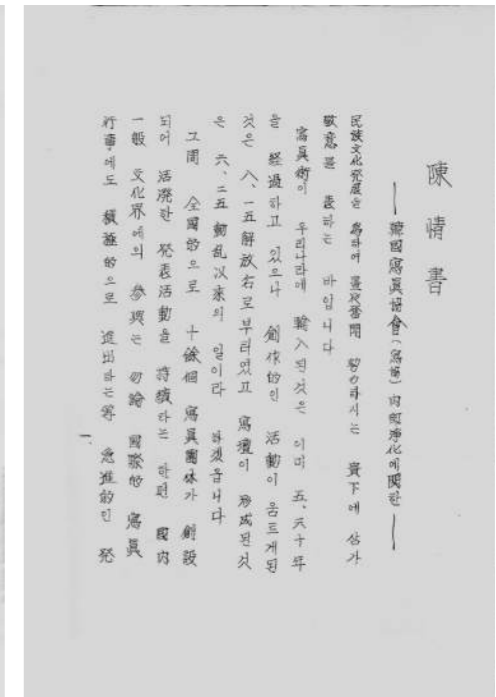 陳情書
── 韓國寫眞協會(寫協) 內部淨化에 關한 ──
民族文化発展을 爲하여 晝夜奮鬪 努力하시는 貴下에 삼가
敬意를 表하는 바입니다
寫眞術이 우리나라에 輸入된것은 이미 五、六十年
을 経過하고 있으나 創作的인 活動이 움트게된
것은 八、一五解放右로부터였고 寫壇이 形成된것
은 六、二五動乱以来의 일이라 하겠읍니다
그間 全國的으로 十餘個 寫眞團体가 創設
되어 活潑한 発表活動을 持續하는 한편 國內
一般 文化界에의 參與는 勿論 國際的 寫眞
行事에도 積極的으로 進出하는等 急進的인 発
一.